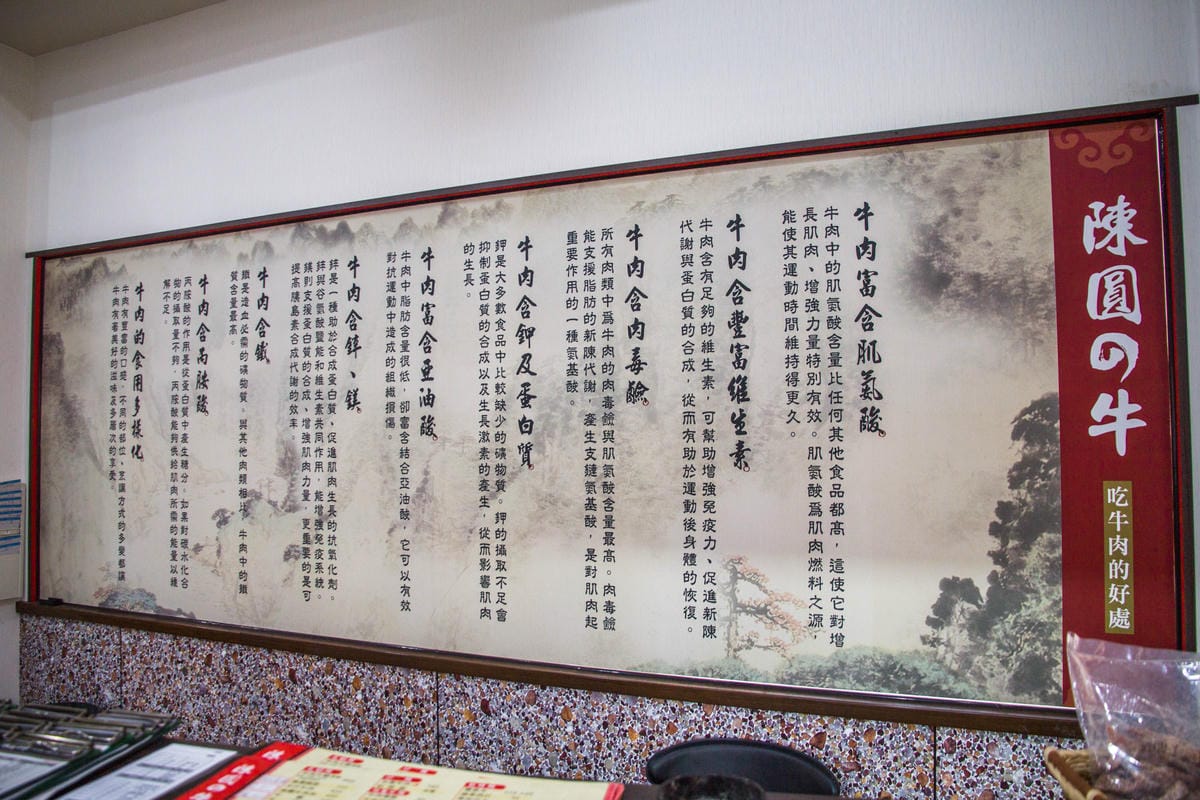 陳圓の牛
吃牛肉的好處
牛肉富含肌氨酸
牛肉中的肌氨酸含量比任何其他食品都高，這使它對增
長肌肉、增強力量特別有效。肌氨酸爲肌肉燃料之源，
能使其運動時間維持得更久。
牛肉含豐富維生素
牛肉含有足夠的維生素，可幫助增強免疫力、促進新陳
代謝與蛋白質的合成，從而有助於運動後身體的恢復。
牛肉含肉毒鹼
所有肉類中爲牛肉的肉毒鹼與肌氨酸含量最高。肉毒鹼
能支援脂肪的新陳代謝，產生支鏈氨基酸，是對肌肉起
重要作用的一種氨基酸。
牛肉含鉀及蛋白質
鉀是大多數食品中比較缺少的礦物質。鉀的攝取不足會
抑制蛋白質的合成以及生長激素的產生，從而影響肌肉
的生長。
牛肉富含亞油酸
牛肉中脂肪含量很低，卻富含結合亞油酸，它可以有效
對抗運動中造成的組織損傷。
牛肉含鋅、鎂
鋅是一種助於合成蛋白質、促進肌肉生長的抗氧化劑。
鋅與谷氨酸鹽能和維生素共同作用，能增強免疫系統。
鎂則支援蛋白質的合成、增強肌肉力量，更重要的是可
提高胰島素合成代謝的效率。
牛肉含鐵
鐵是造血必需的礦物質。與其他肉類相比，牛肉中的鐵
質含量最高。
牛肉含丙胺酸
丙胺酸的作用是從蛋白質中產生糖分。如果對碳水化合
物的攝取量不夠，丙胺酸能夠供給肌肉所需的能量以緩
解不足。
牛肉的食用多樣化
牛肉有豐富的口感，不同的部位、烹調方式的多變都讓
牛肉有著美好的滋味及多層次的享受。